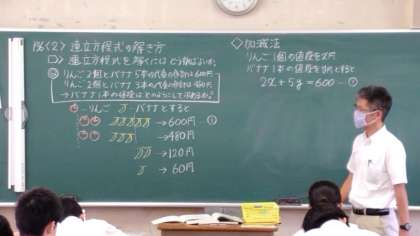 (2) 連立方程式の解き方
連立方程式を解くにはどうすればよいか。
りんご2個とバナナ5本の代金の合計は600円
りんご2個とバナナ3本の代金の合計は480円
→バナナ1本の値段はどのようにして求めるか?
…りんご …バナナとすると
→600円…①
→480円
→120円
→60円
◇加減法
りんご1個の値段をx円
バナナ1本の値段をy円とすると
2x+5y=600…①